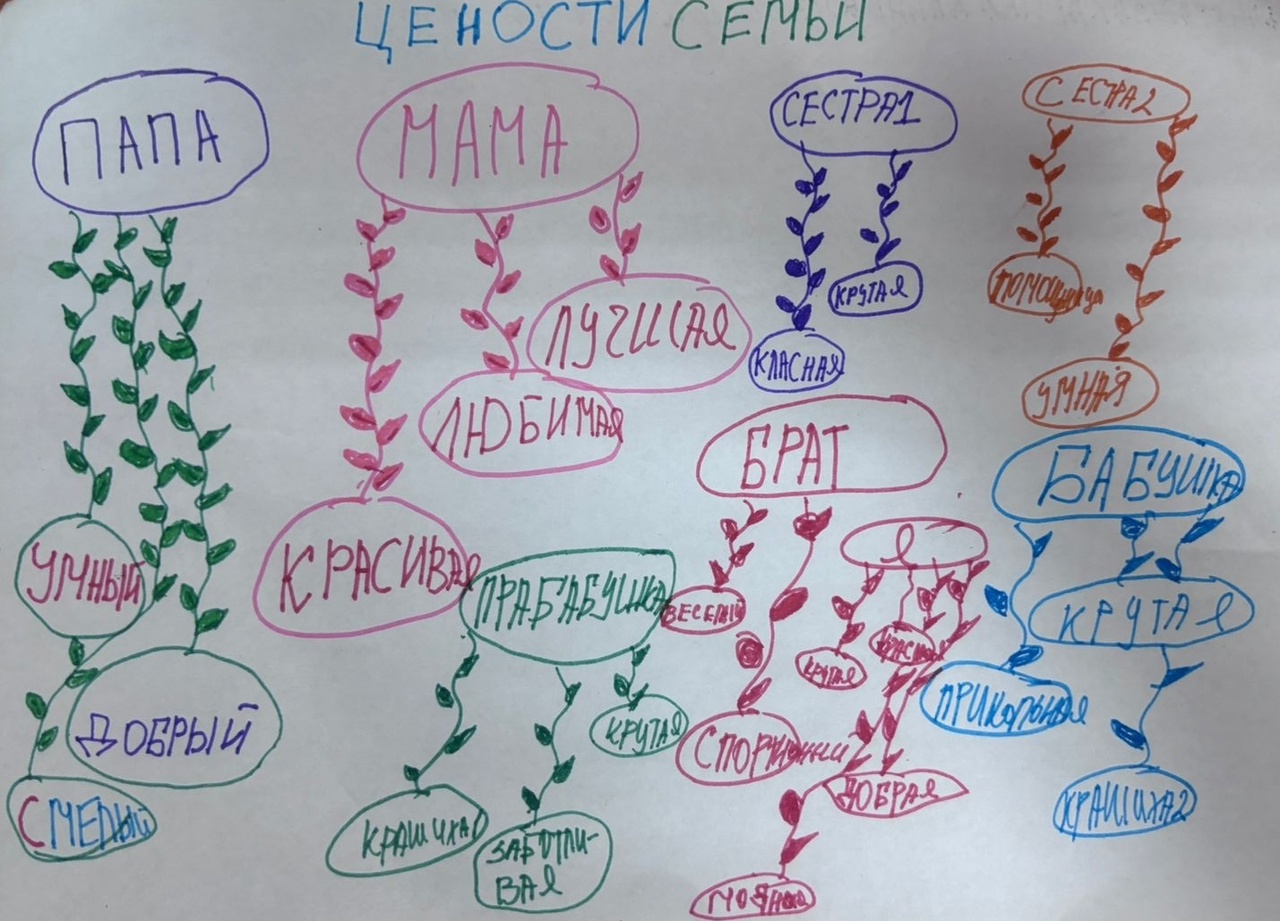 ЦЕНОСТИ СЕМЬИ
ПАПА
УМНЫЙ
ДОБРЫЙ
СМЕЛЫЙ
МАМА
ЛУЧШАЯ
ЛЮБИМАЯ
КРАСИВАЯ
СЕСТРА1
КРУТАЯ
КЛАСНАЯ
СЕСТРА2
ПОМОЩница
УМНАЯ
БРАТ
ВЕСЕЛЫЙ
Я
КРУТАЯ
КЛАСНАЯ
ДОБРАЯ
БАБУШКА
КРУТАЯ
ПРИКОЛЬНАЯ
КРАШИХА2
ПРАБАБУШКА
КРУТАЯ
КРАШИХА1
ЗАБОТЛИ-
ВАЯ